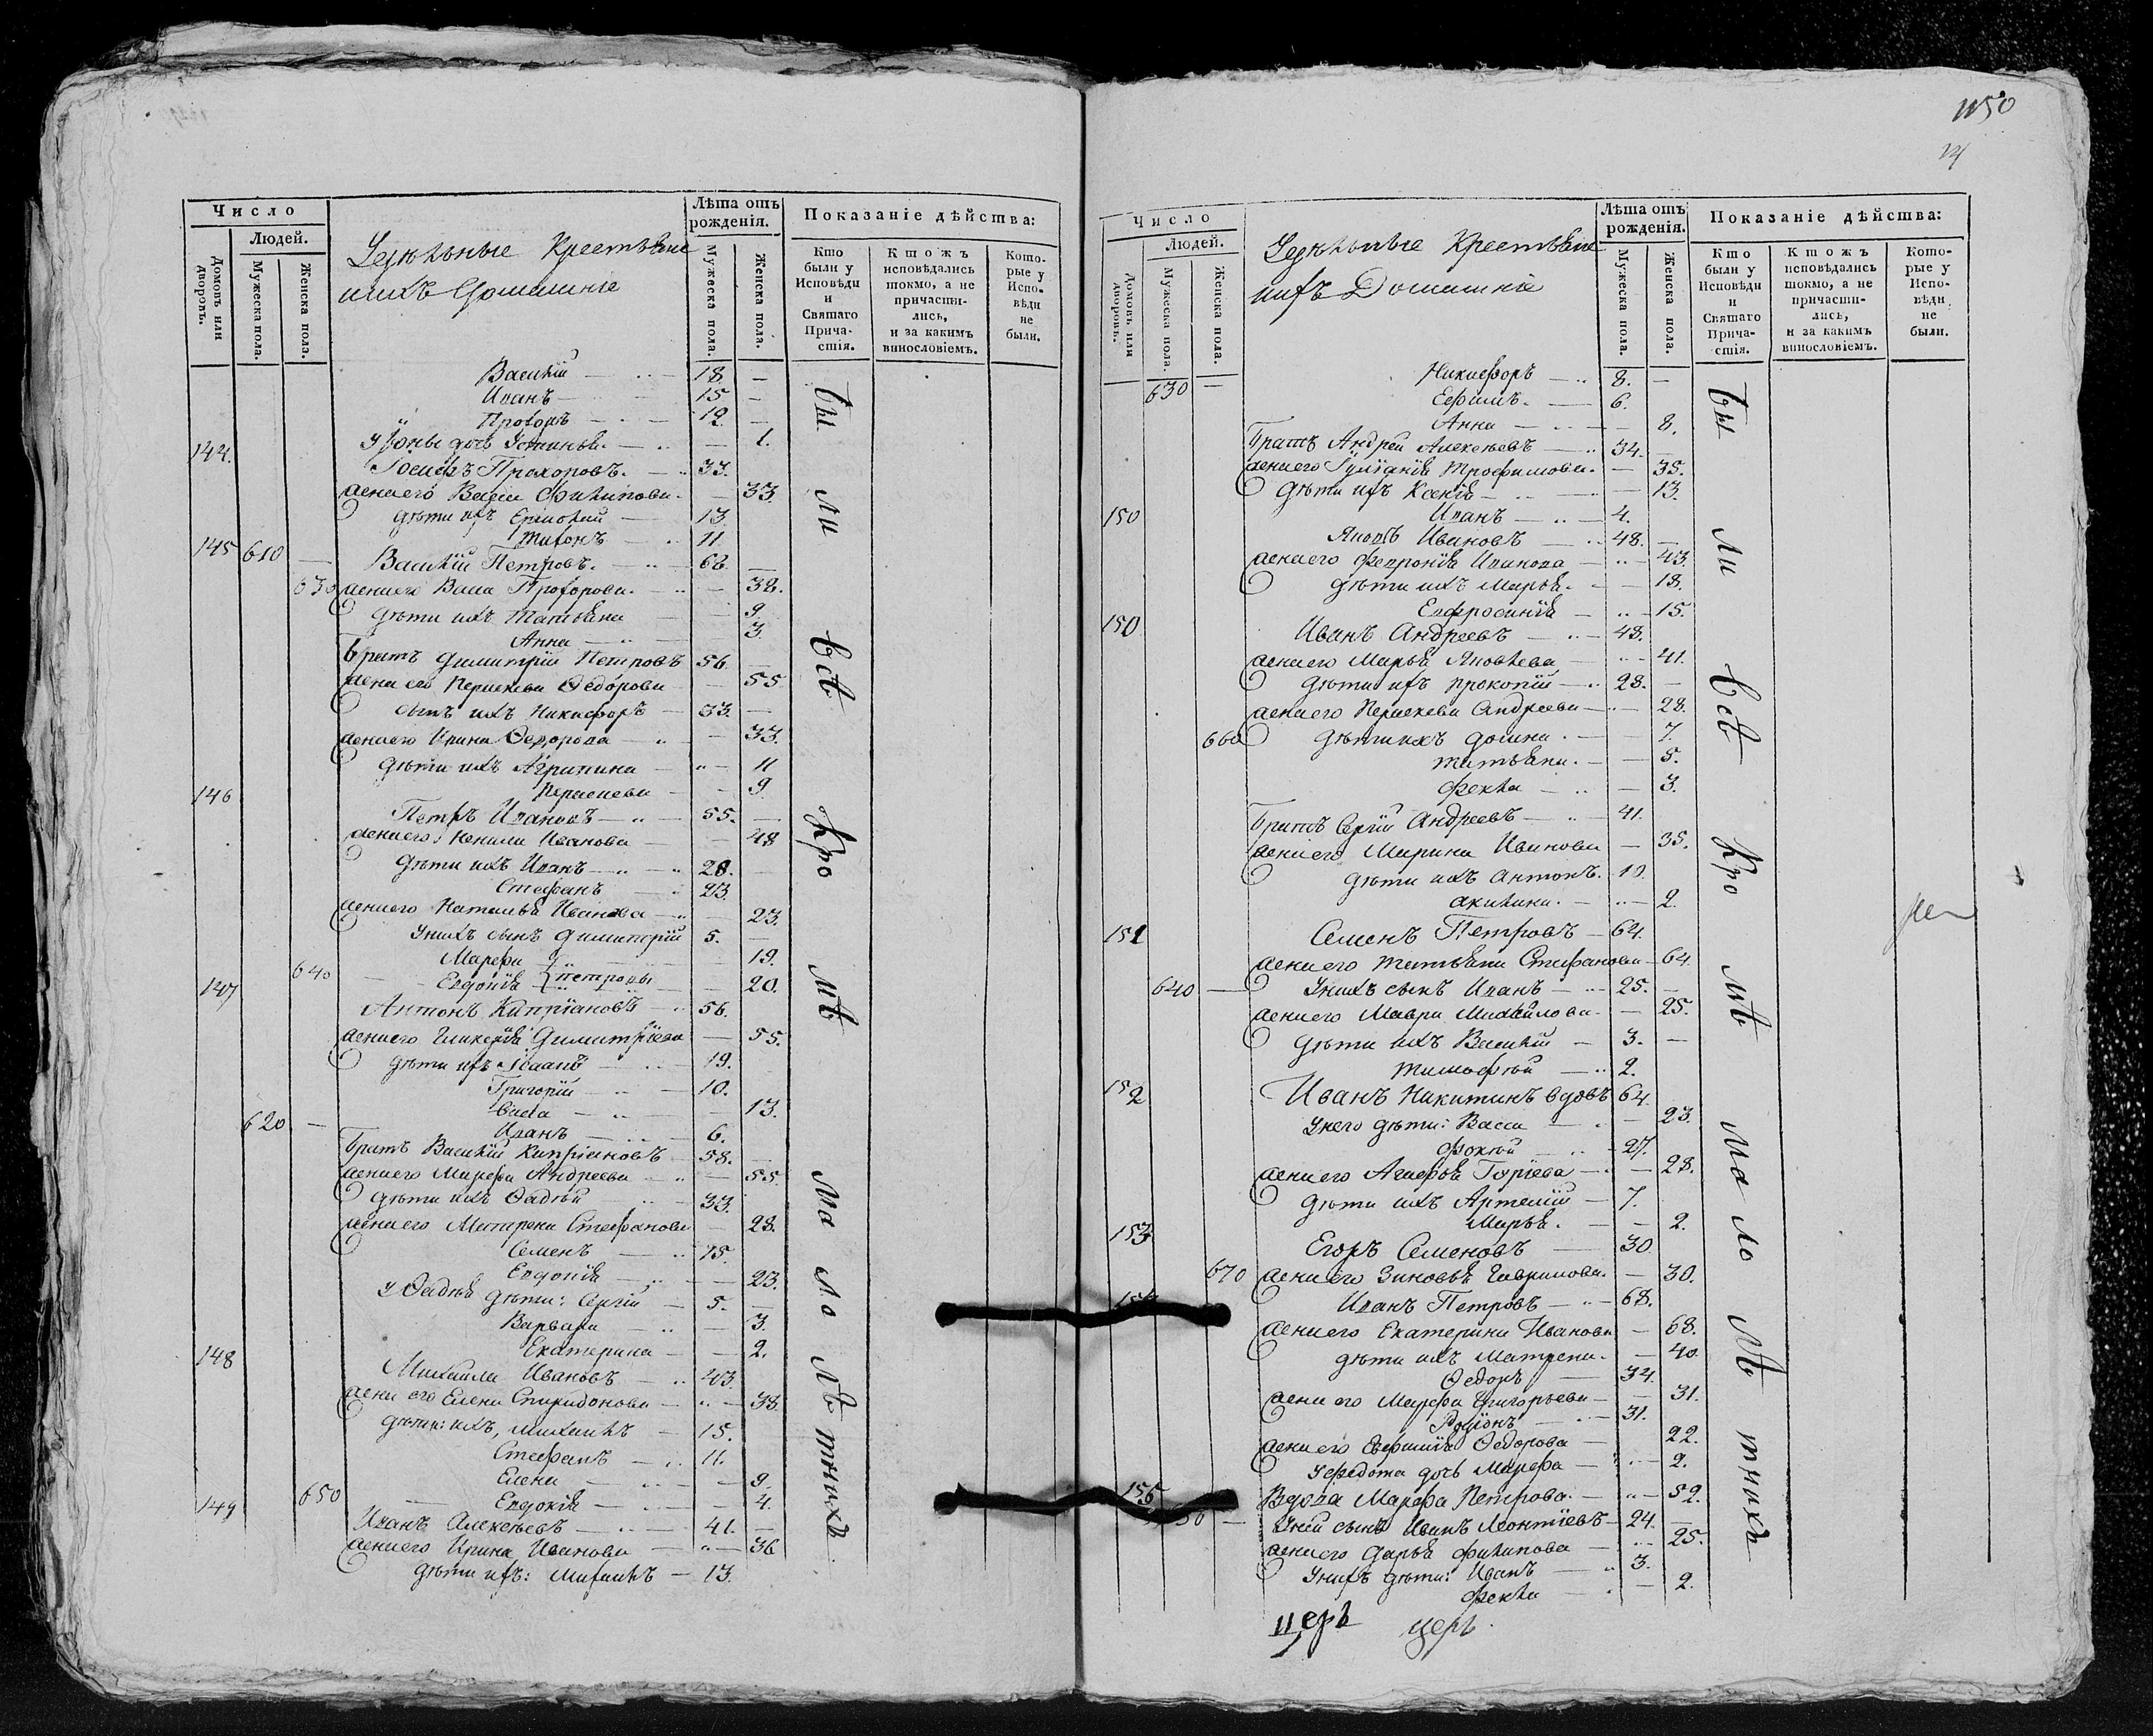 Число
Людей.
Домовъ или дворовъ.
Мужеска пола.
Женска пола.
Удѣльные Крестьяне
ихъ Домашніе
Лѣта отъ рожденія.
Мужеска пола.
Женска пола.
Показаніе дѣйства:
Кто были у Исповѣди и Святаго Причастія.
Ктожъ исповѣдались токмо, а не причастились, и за какимъ винословіемъ.
Которые у Исповѣди не были.
Василій 18. —
Иванъ 15 —
Прохоръ 12. —
дочь Устинья — 1.
144. Іосифъ Прохоровъ. 33.
жена его Васса Филипова — 33
дѣти ихъ Ермолай 13.
Тихонъ 11.
145 610 — Василій Петровъ. 62. —
630 жена его Васса Прохорова. — 32.
дѣти ихъ Татьяна 9
Анна 3.
братъ Димитрій Петровъ 56. —
жена его Параскева Ѳедорова — 55
сынъ ихъ Никифоръ 33. —
жена его Ирина Ѳедорова — 33.
дѣти ихъ Агрипина — 11
Параскева — 9
146 Петръ Ивановъ 55. —
жена его Ненила Иванова — 48
дѣти ихъ Иванъ 28. —
Стефанъ 23.
жена его Наталья Иванова — 23.
У нихъ сынъ Димитрій 5. —
Марфа — 19.
640 Евдокія } Петровы — 20.
147 Антонъ Кипріановъ 56.
жена его Гликерія Димитріева — 55.
дѣти ихъ Іоаннъ 19.
Григорій 10.
— 13.
620 — Иванъ 6.
братъ Василій Кипріановъ 58. —
жена его Марфа Андреева — 55.
дѣти ихъ Ѳадѣй 33.
жена его Матрена Стефанова — 28.
Семенъ 15.
Евдокія — 23.
у Ѳадѣя дѣти: Сергій 5. —
Варвара — 3.
Екатерина — 2.
148 Михаила Ивановъ 43.
жена его Елена Спиридонова — 38
дѣти: ихъ, Михаилъ 15.
Стефанъ 11.
Елена — 9.
650 Евдокія — 4.
149 Иванъ Алексѣевъ 41. —
жена его Ирина Иванова — 36
дѣти ихъ: Михаилъ 13.
Бы
ли
всѣ
кро
мѣ
ма
ло
лѣтныхъ
1150
14
Число
Людей.
Домовъ или дворовъ.
Мужеска пола.
Женска пола.
Удѣльные Крестьяне
ихъ Домашніе
Лѣта отъ рожденія.
Мужеска пола.
Женска пола.
Показаніе дѣйства:
Кто были у Исповѣди и Святаго Причастія.
Ктожъ исповѣдались токмо, а не причастились, и за какимъ винословіемъ.
Которые у Исповѣди не были.
630 — Никифоръ 8. —
Ефимъ. 6.
Анна — 8.
братъ Андрей Алексѣевъ 34. —
жена его Іуліанія Трофимова. — 35.
дѣти ихъ Ксенія — 13.
150 Иванъ 4.
Яковъ Ивановъ 48. —
жена его Февронія Иванова — 43.
дѣти ихъ Марья. — 18.
Евфросинія — 15.
150 Иванъ Андреевъ 48.
жена его Марья Яковлева — 41.
дѣти ихъ Прокопій 28. —
жена его Параскева Андреева — 28.
660 дѣти ихъ Домна. — 7.
Татьяна. — 5.
Фекла — 3.
братъ Сергій Андреевъ 41.
жена его Марина Иванова — 35.
дѣти ихъ Антонъ. 10.
Акилина. — 2.
151 Семенъ Петровъ 64.
жена его Татьяна Стефанова — 64
640 — У нихъ сынъ Иванъ 25. —
жена его Мавра Михайлова. — 25.
дѣти ихъ Василій 3. —
Тимофѣй 2.
152 Иванъ Никитинъ вдовъ 64
У него дѣти: Васса — 23.
Фокѣй 27.
жена его Агафья Гуріева — 28.
дѣти ихъ Артемій 7.
Марья. — 2.
153 Егоръ Семеновъ 30
670 жена его Зиновья Гаврилова. — 30.
Иванъ Петровъ 68.
жена его Екатерина Иванова — 68.
дѣти ихъ Матрена. — 40
Ѳедоръ 34.
жена его Марфа Григорьева — 31.
Родіонъ 31.
жена его Евфимія Ѳедорова 22.
У Ѳедота дочь Марфа — 2.
155 Вдова Марфа Петрова. — 52.
У ней сынъ Иванъ Леонтіевъ 24. —
жена его Дарья Филипова — 25.
У нихъ дѣти: Иванъ 3.
Фекла — 2.
Бы
ли
всѣ
кро
мѣ
ма
ло
лѣ
тныхъ
церь
церь